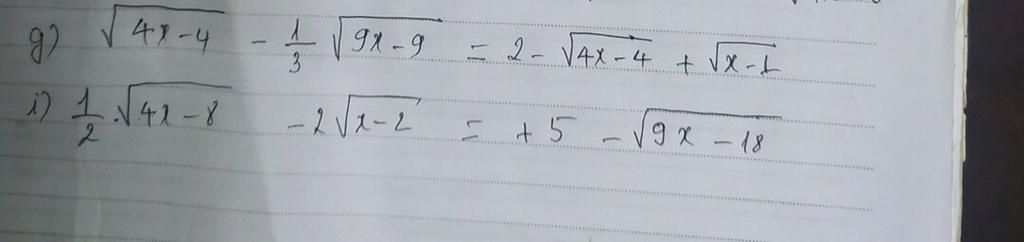 g) √(4x-4) - 1/3 √(9x-9) = 2 - √(4x-4) + √(x-1)
i) 1/2 .√(4x-8) - 2√(x-2) = +5 - √(9x-18)